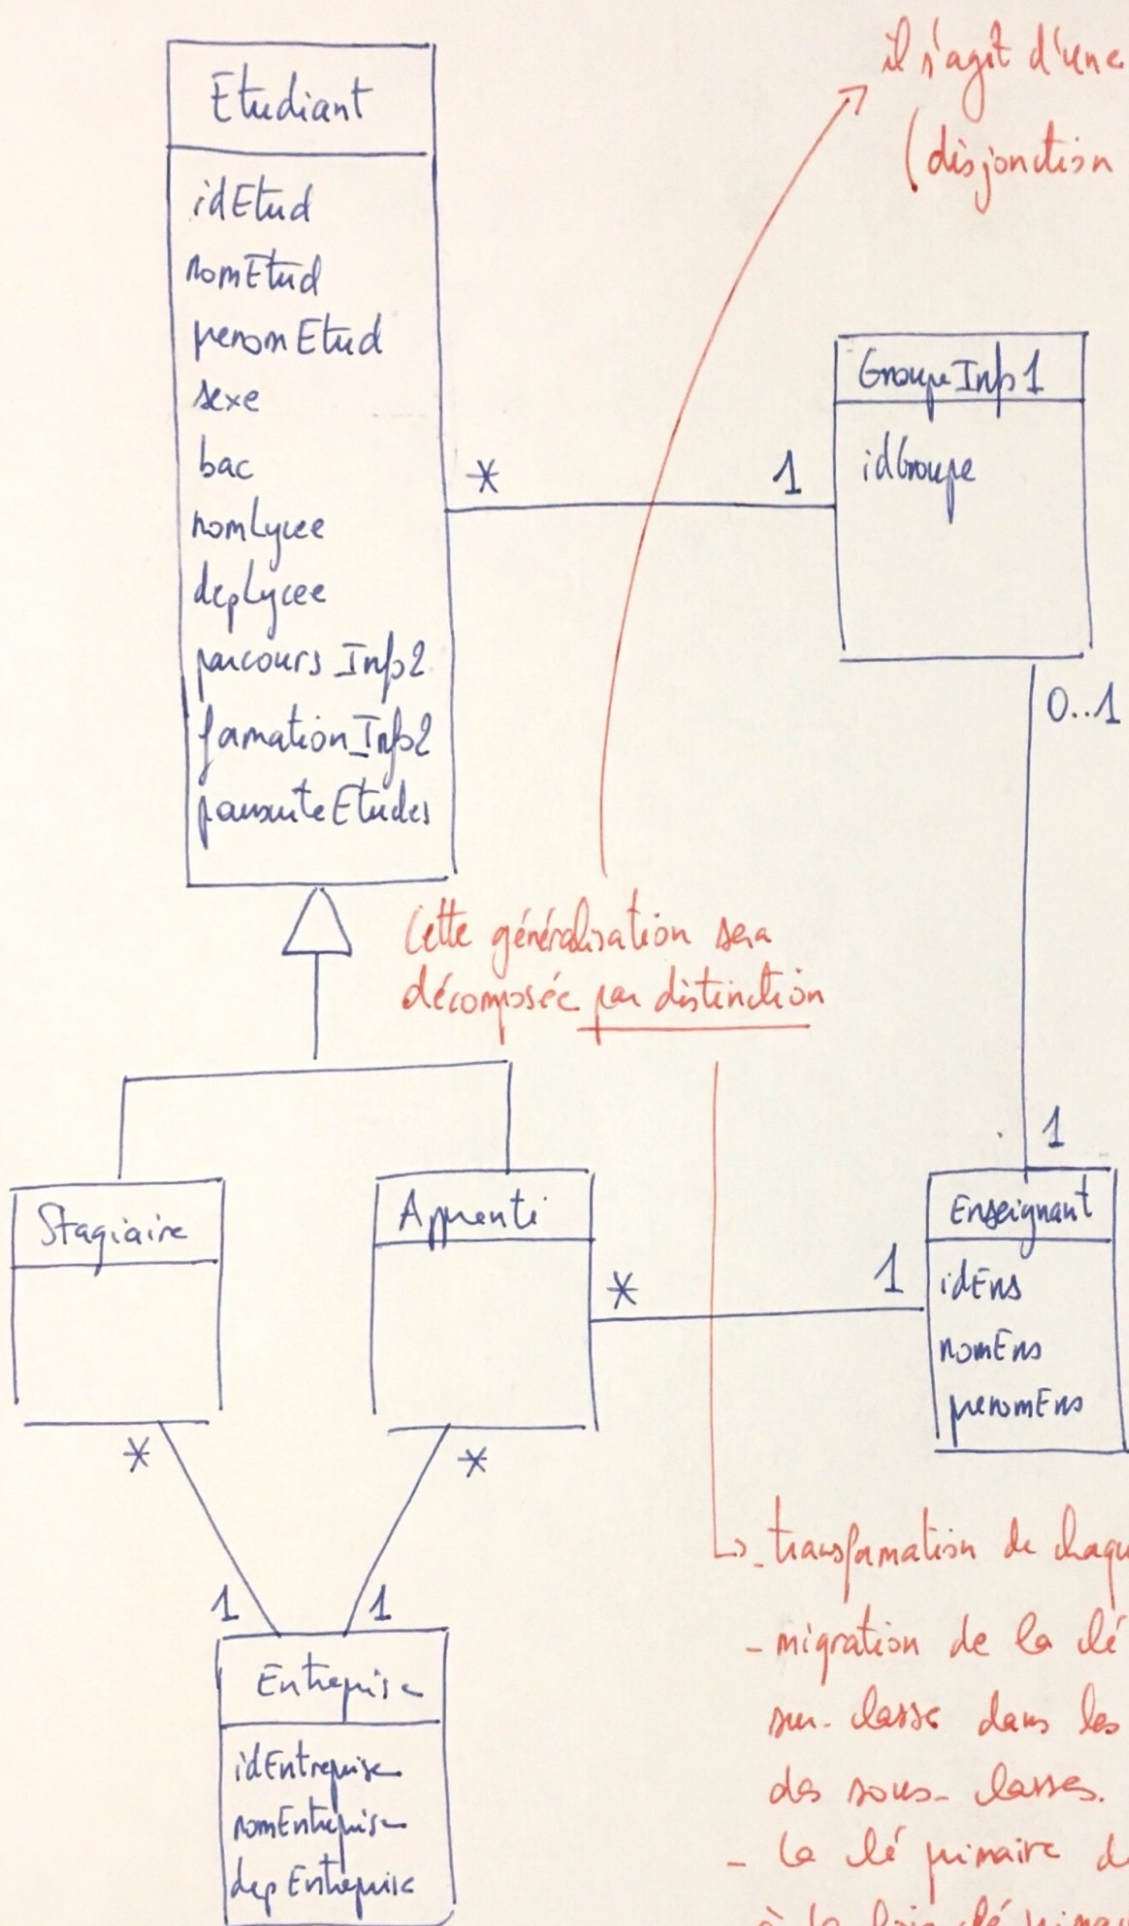 il s'agit d'une
(disjonction
Etudiant
idEtud
nomEtud
prenomEtud
sexe
bac
nomLycee
depLycee
parcours_Info2
formation_Info2
poursuiteEtudes
*
1
GroupeInfo1
idGroupe
0..1
Cette généralisation sera
décomposée par distinction
Stagiaire
Apprenti
*
1
1
Enseignant
idEns
nomEns
prenomEns
*
*
1
1
Entreprise
idEntreprise
nomEntreprise
depEntreprise
↳ - transformation de chaqu
- migration de la clé
sur-classe dans les
des sous-classes.
- la clé primaire d
à la fois clé